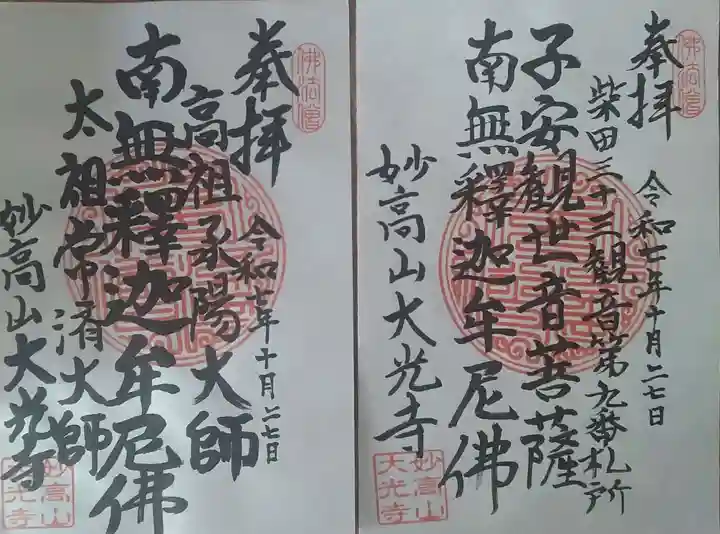 佛法僧
奉拝
柴田三十三観音第九番札所
令和七年十月二七日
子安観世音菩薩
南無釋迦牟尼佛
妙高山大光寺
妙高山
大光寺
佛法僧
奉拝
令和七年十月二七日
高祖承陽大師
南無釋迦牟尼佛
太祖常済大師
妙高山大光寺
妙高山
大光寺